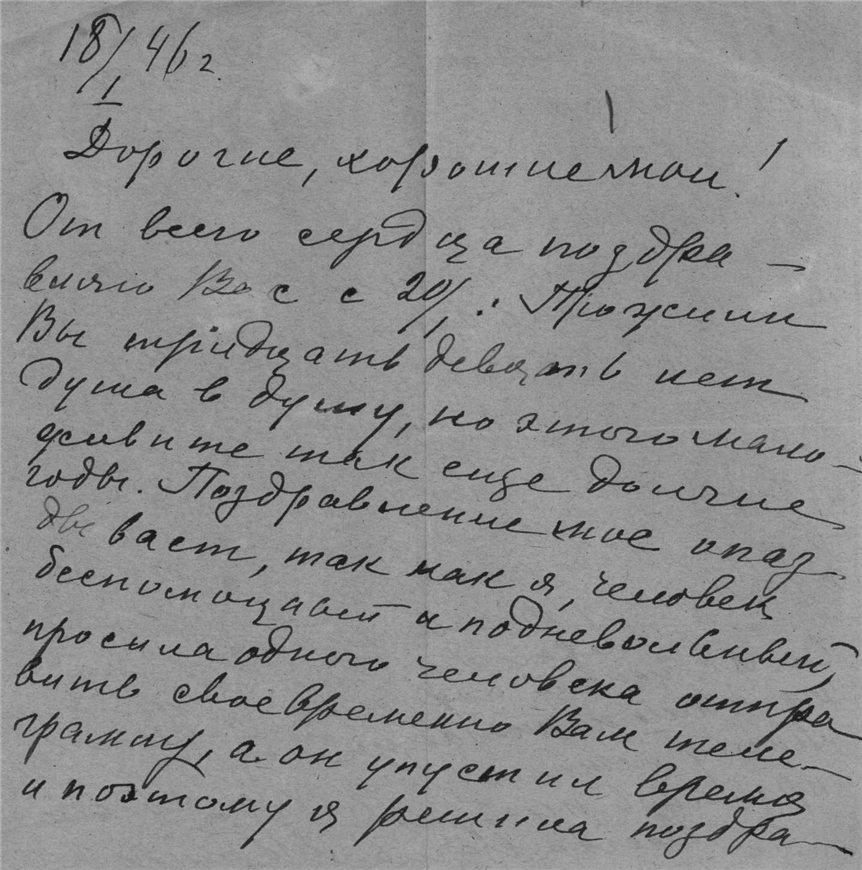 18/I 46 г.
Дорогие, хорошие мои!
От всего сердца поздра-
вляю Вас с 20/I. Прожили
Вы тридцать девять лет
душа в душу, но этого мало -
живите так еще долгие
годы. Поздравление мое опаз
дывает, так как я, человек
беспомощный и подневольный,
просила одного человека отпра
вить своевременно Вам теле-
грамму, а он упустил время
и поэтому я решила поздра-